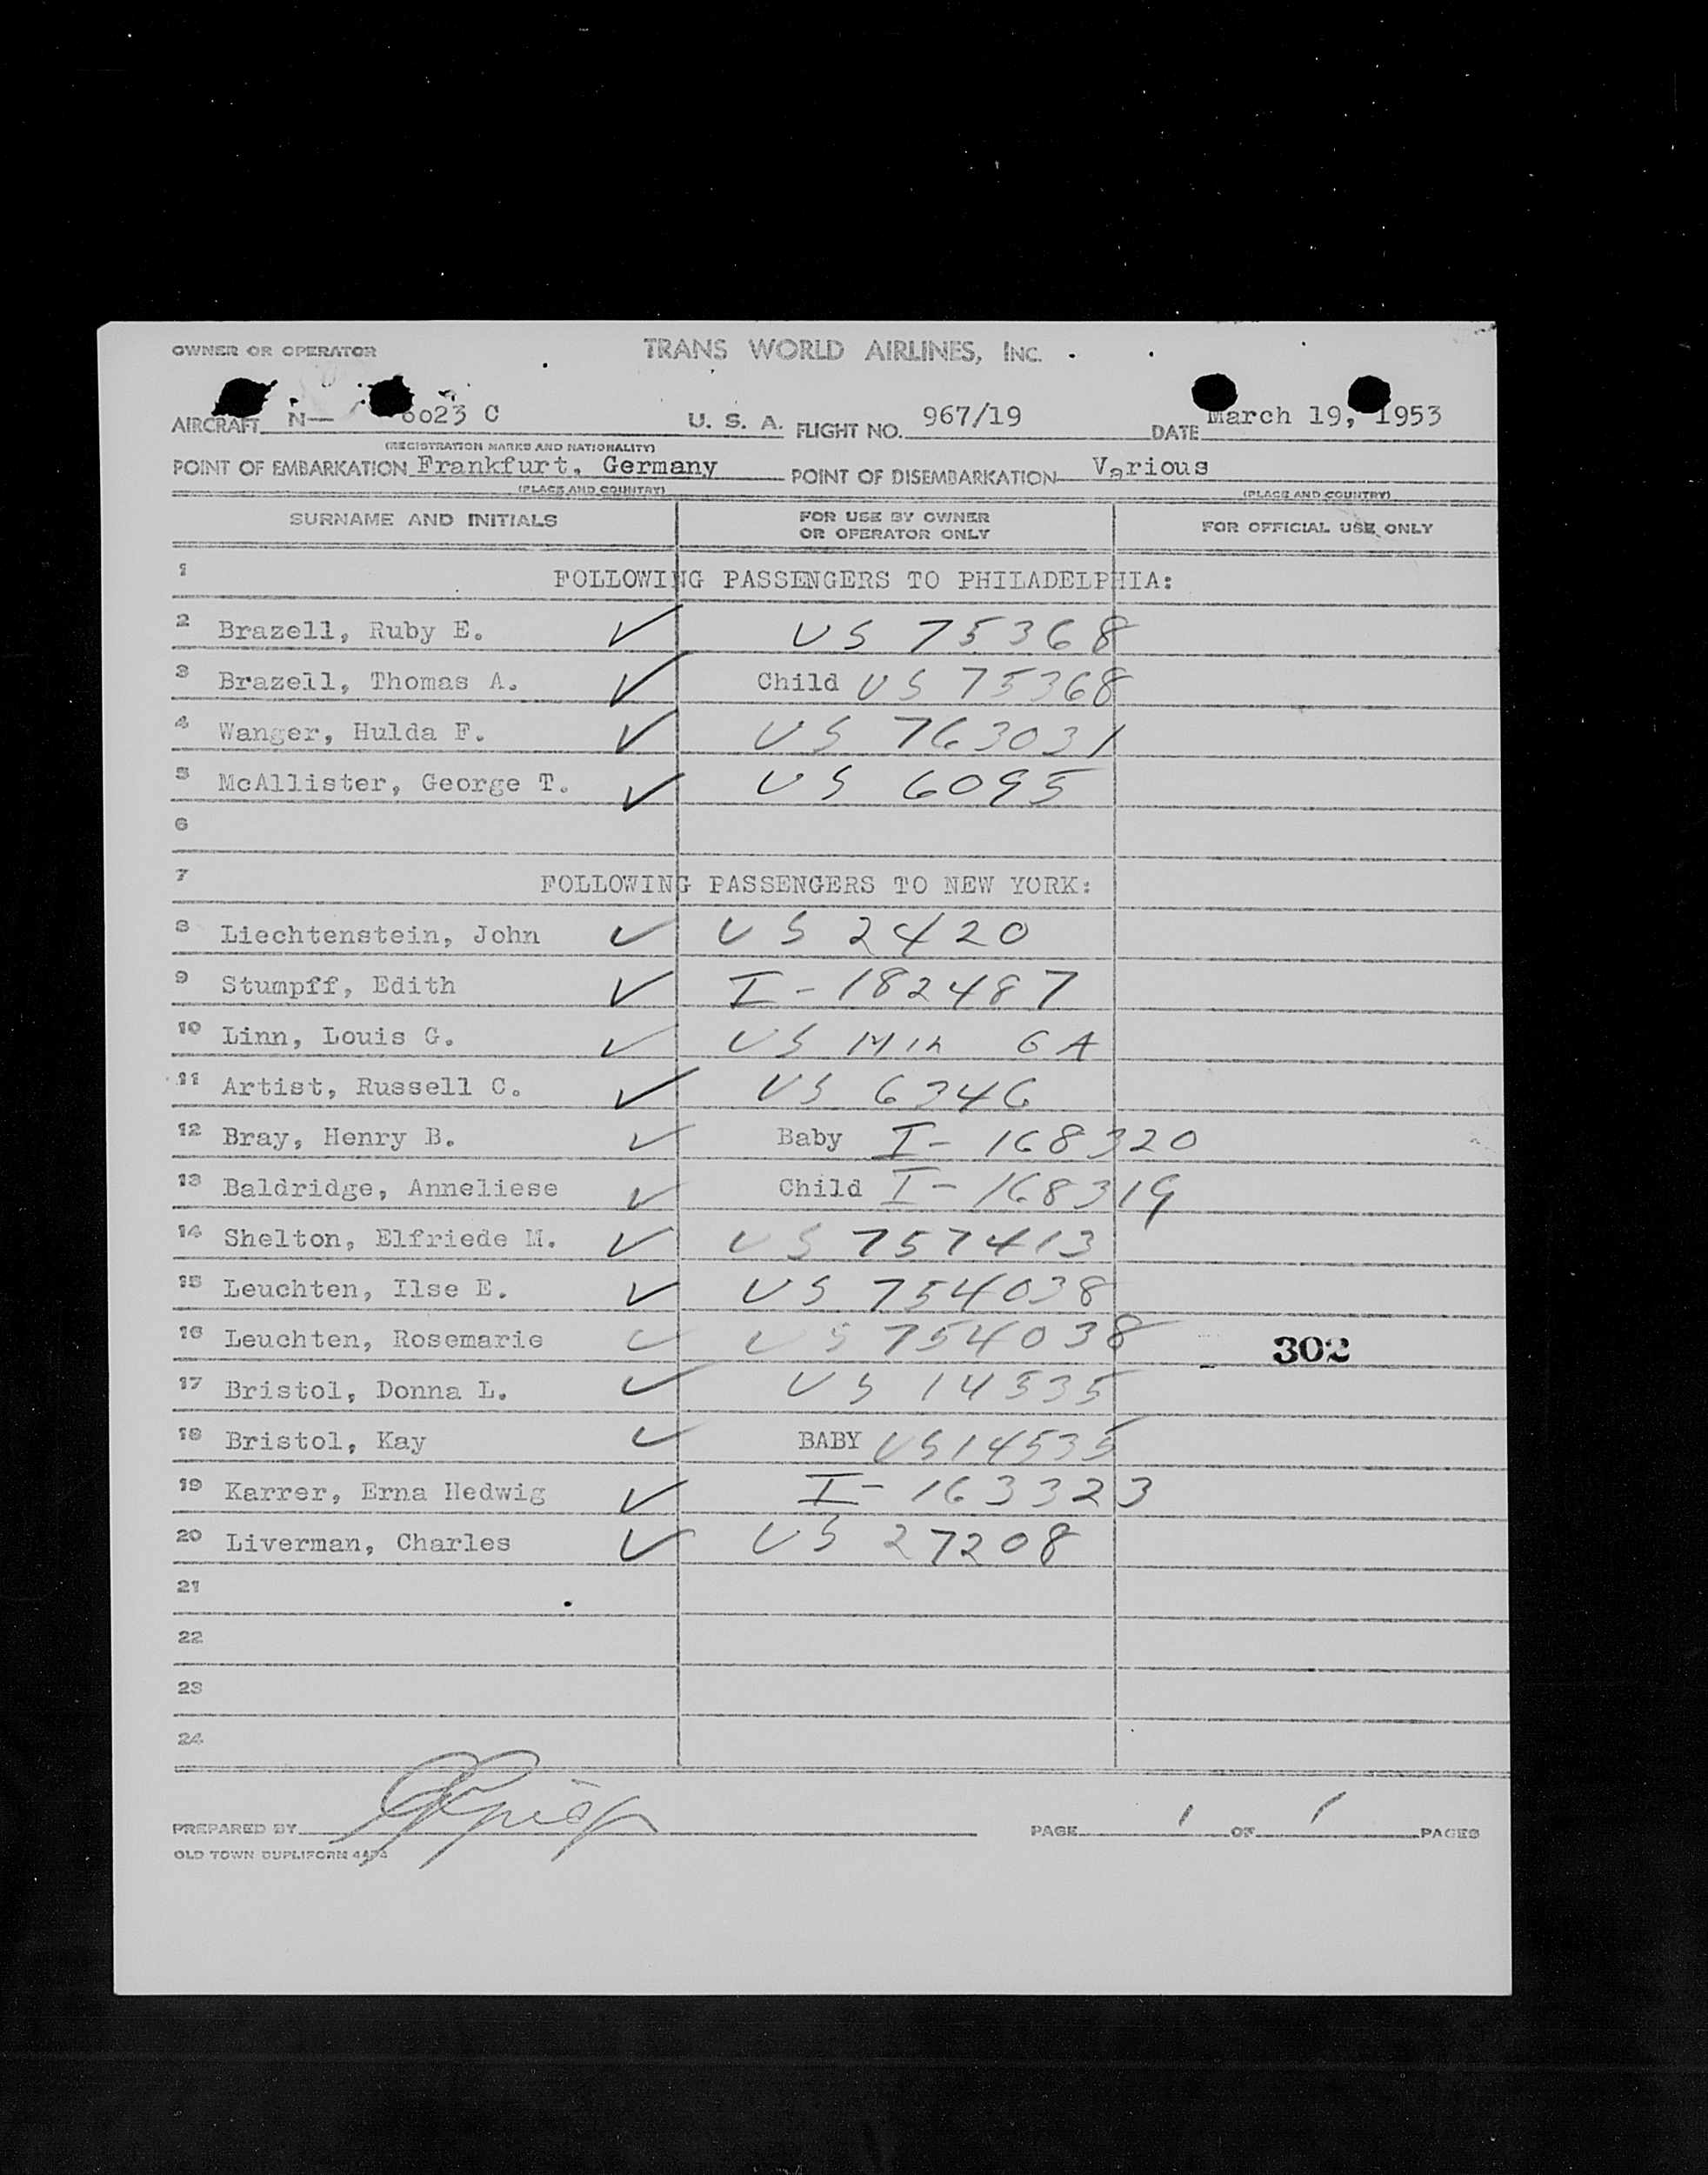 OWNER OR OPERATOR TRANS WORLD AIRLINES, INC.
AIRCRAFT N— 6023 C U. S. A. FLIGHT NO. 967/19 DATE March 19, 1953
(REGISTRATION MARKS AND NATIONALITY)
POINT OF EMBARKATION Frankfurt, Germany POINT OF DISEMBARKATION Various
(PLACE AND COUNTRY) (PLACE AND COUNTRY)
SURNAME AND INITIALS FOR USE BY OWNER OR OPERATOR ONLY FOR OFFICIAL USE ONLY
1 FOLLOWING PASSENGERS TO PHILADELPHIA:
2 Brazell, Ruby E. ✓ US 75368
3 Brazell, Thomas A. ✓ Child US 75368
4 Wanger, Hulda F. ✓ US 763031
5 McAllister, George T. ✓ US 6095
6
7 FOLLOWING PASSENGERS TO NEW YORK:
8 Liechtenstein, John ✓ US 2420
9 Stumpff, Edith ✓ I - 182487
10 Linn, Louis G. ✓ US Min GA
11 Artist, Russell C. ✓ US 6346
12 Bray, Henry B. ✓ Baby I - 168320
13 Baldridge, Anneliese ✓ Child I - 168319
14 Shelton, Elfriede M. ✓ US 757413
15 Leuchten, Ilse E. ✓ US 754038
16 Leuchten, Rosemarie ✓ US 754038 302
17 Bristol, Donna L. ✓ US 14535
18 Bristol, Kay ✓ BABY US 14535
19 Karrer, Erna Hedwig ✓ I - 163323
20 Liverman, Charles ✓ US 27208
21
22
23
24
PREPARED BY PAGE 1 OF 1 PAGES
OLD TOWN DUPLIFORM